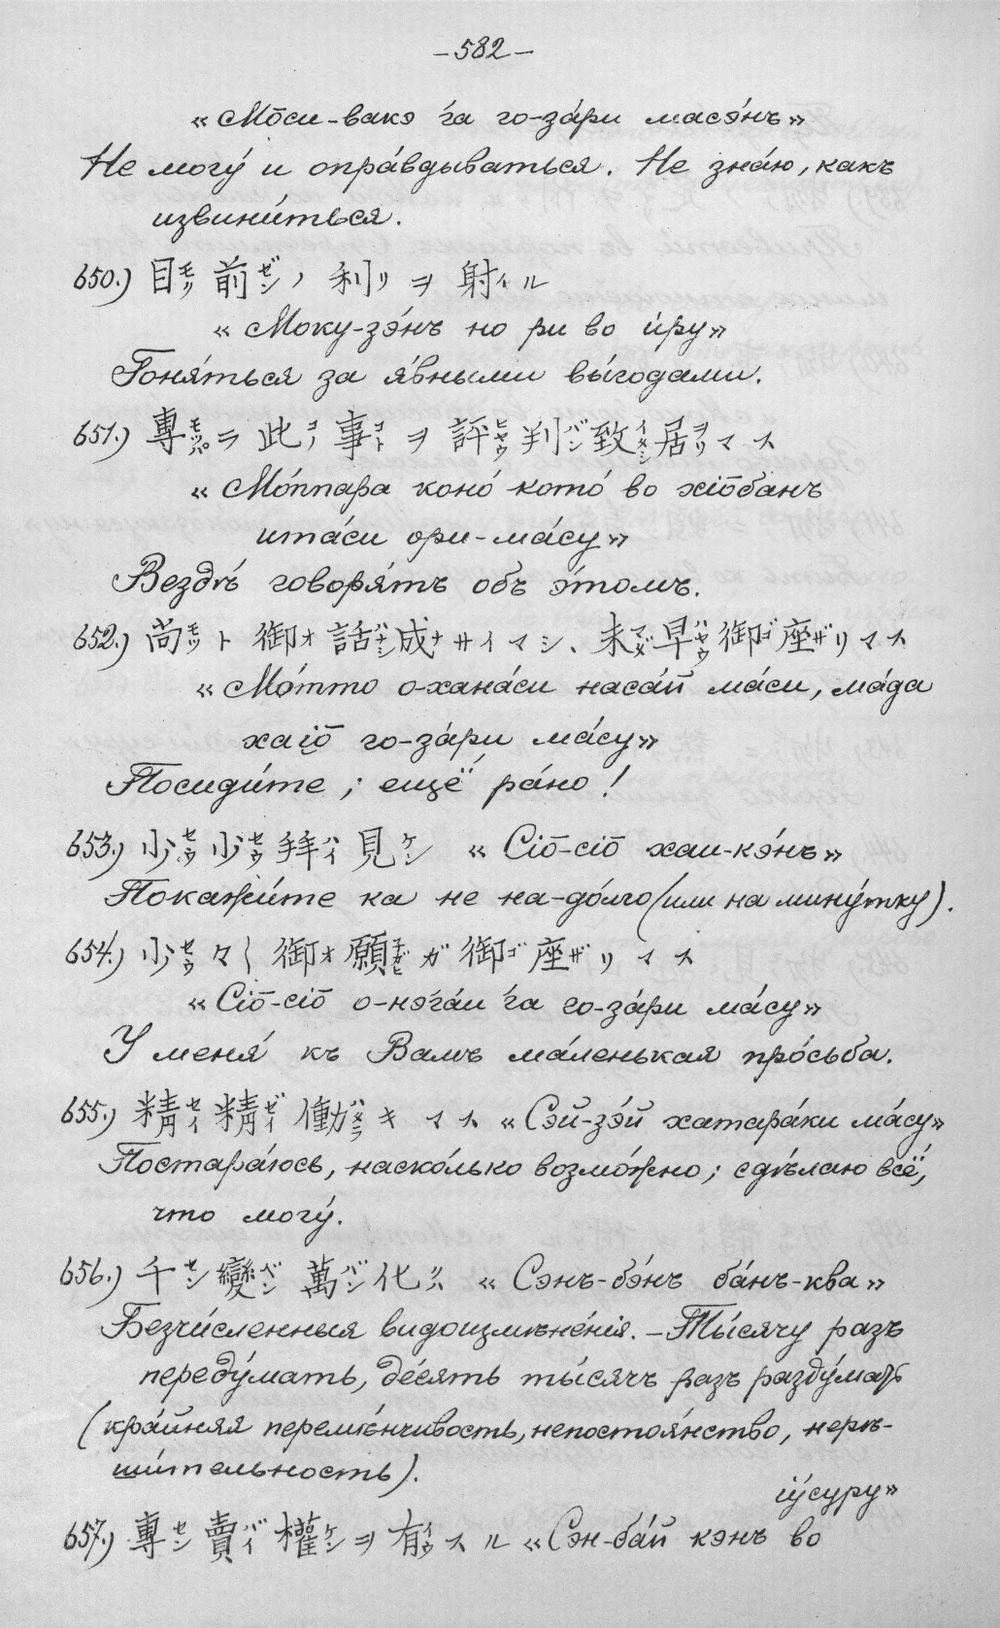 – 582 –
«Мо̄си-вакэ га го-за́ри масэ́нъ»
Не могу́ и опра́вдываться. Не зна́ю, какъ
извини́ться.
650.) 目モク前ゼンノ 利リヲ 射イル
«Моку-зэ́нъ но ри во и́ру»
Гоня́ться за я́вными вы́годами.
651.) 專モッパラ 此コノ事コトヲ 評ヒャウ判バン致イタシ居ヲリマス
«Мо́ппара коно́ кото́ во хіо̄банъ
ита́си ори-ма́су»
Вездѣ́ говоря́тъ объ э́томъ.
652.) 尚モット 御オ話ハナシ成ナサイマシ、未マダ早ハヤウ御ゴ座ザリマス
«Мо́тто о-хана́си наса́й ма́си, ма́да
хаіо̄ го-за́ри ма́су»
Посиди́те; ещё ра́но!
653.) 少セウ少セウ拜ハイ見ケン «Сіо̄-сіо̄ хаи-кэ́нъ»
Покажи́те ка не на-до́лго (или на мину́тку).
654.) 少セウ々〱 御オ願ネガヒガ 御ゴ座ザリマス
«Сіо̄-сіо̄ о-нэ́га́и га го-за́ри ма́су»
У меня́ къ Вамъ ма́ленькая про́сьба.
655.) 精セイ精ゼイ 働ハタラキマス «Сэй-зэ́й хатара́ки ма́су»
Постара́юсь, наско́лько возмо́жно; сдѣ́лаю всё,
что могу́.
656.) 千セン變ベン 萬バン化クハ «Сэнъ-бэ́нъ ба́нъ-ква»
Безчи́сленныя видоизмѣне́нія. – Ты́сячу разъ
переду́мать, де́сять ты́сячъ разъ разду́мать
(кра́йняя перемѣ́нчивость, непостоя́нство, нерѣ-
ши́тельность).
657.) 專セン賣バイ 權ケンヲ 有イウスル «Сэн-ба́й кэнъ во
іу́суру»